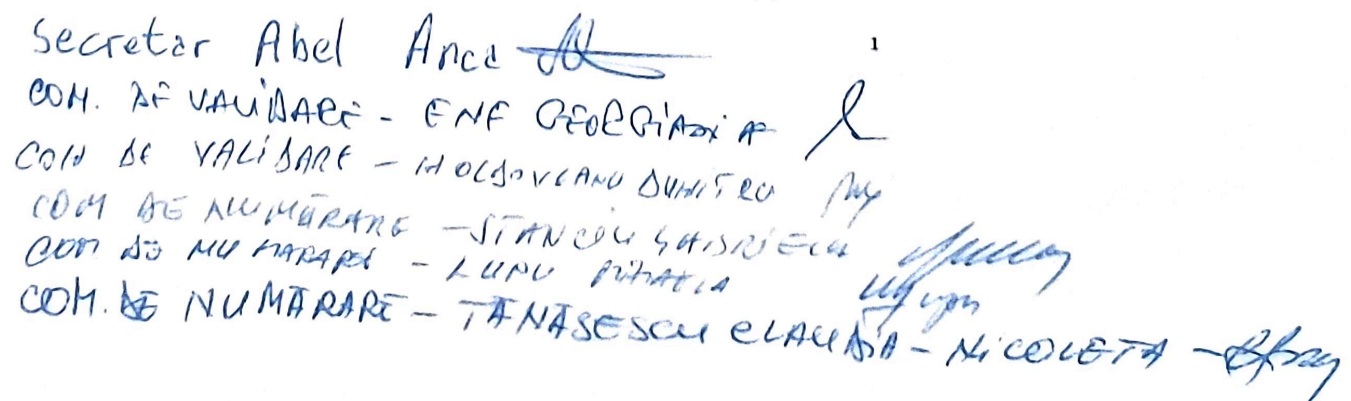 1
Secretar Abel Anca
COM. DE VALIDARE - ENE GEORGIANA
COM DE VALIDARE - MOLDOVEANU DUMITRU
COM DE NUMĂRARE - STANCIU GABRIELA
COM DE NUMARARE - LUPU MIHAELA
COM. DE NUMĂRARE - TĂNĂSESCU CLAUDIA - NICOLETA -